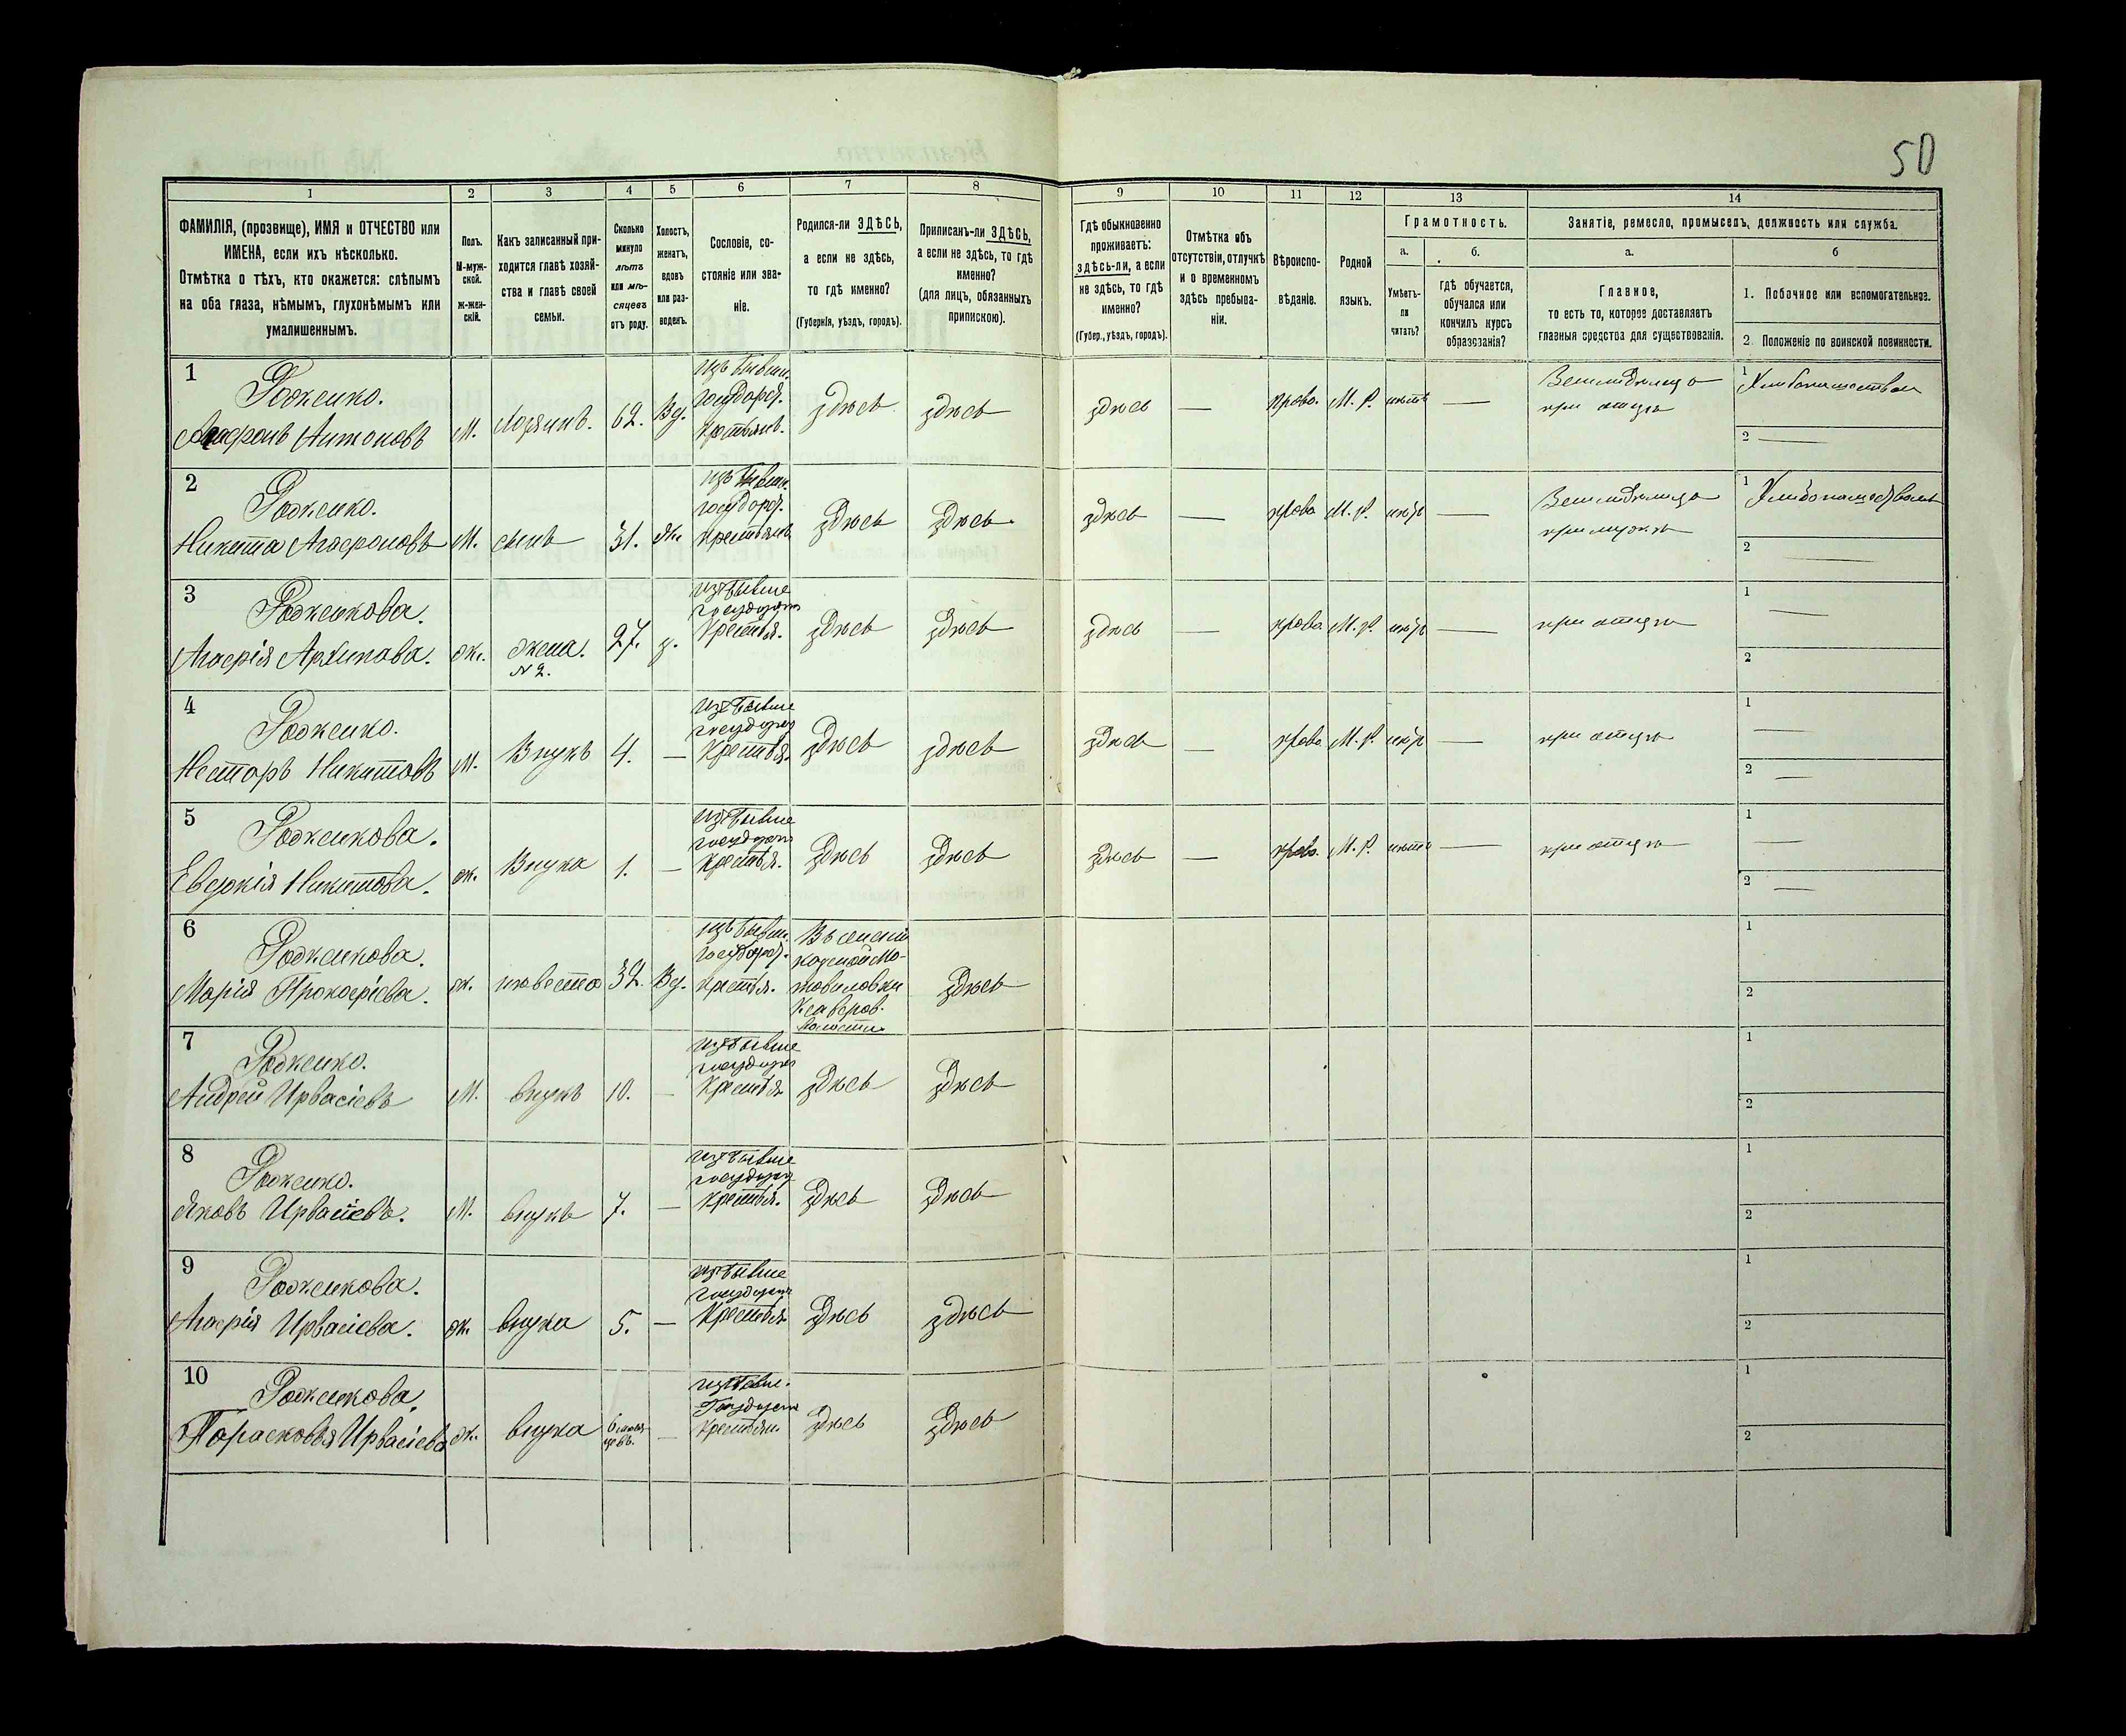 50
1 2 3 4 5 6 7 8 9 10 11 12 13 14
ФАМИЛІЯ, (прозвище), ИМЯ и ОТЧЕСТВО или
ИМЕНА, если ихъ нѣсколько.
Отмѣтка о тѣхъ, кто окажется: слѣпымъ
на оба глаза, нѣмымъ, глухонѣмымъ или
умалишеннымъ.
Полъ.
М-муж-
ской.
ж-жен-
скій.
Какъ записанный при-
ходится главѣ хозяй-
ства и главѣ своей
семьи.
Сколько
минуло
лѣтъ
или мѣ-
сяцевъ
отъ роду.
Холостъ,
женатъ,
вдовъ
или раз-
веденъ.
Сословіе, со-
стояніе или зва-
ніе.
Родился-ли ЗДѢСЬ,
а если не здѣсь,
то гдѣ именно?
(Губернія, уѣздъ, городъ).
Приписанъ-ли ЗДѢСЬ,
а если не здѣсь, то гдѣ
именно?
(для лицъ, обязанныхъ
припискою).
Гдѣ обыкновенно
проживаетъ:
здѣсь-ли, а если
не здѣсь, то гдѣ
именно?
(Губер., уѣздъ, городъ).
Отмѣтка объ
отсутствіи, отлучкѣ
и о временномъ
здѣсь пребыва-
ніи.
Вѣроиспо-
вѣданіе.
Родной
языкъ.
Грамотность.
а.
Умѣетъ-
ли
читать?
б.
гдѣ обучается,
обучался или
кончилъ курсъ
образованія?
Занятіе, ремесло, промыселъ, должность или служба.
а.
Главное,
то есть то, которое доставляетъ
главныя средства для существованія.
б
1. Побочное или вспомогательное.
2. Положеніе по воинской повинности.
1
Родженко.
Антоновъ М. 62. Вд.
изъ бывш.
государ.
здѣсь здѣсь здѣсь — М. Р. —
1
2 —
2
Родженко.
Никита Агафоновъ М. сынъ 31. ж.
изъ бывш.
государ.
крестьянъ здѣсь здѣсь здѣсь — права М. Р. —
1
2 —
3
Родженкова.
Агафія Архипова. ж. жена. 27. з.
N 2.
изъ бывше
крестья. здѣсь здѣсь здѣсь — права М. Р. — при отцѣ
1 —
2
4
Родженко.
Несторъ Никитовъ М. Внукъ 4. —
изъ бывше
крестья. здѣсь здѣсь здѣсь — права М. Р. — при отцѣ
1 —
2 —
5
Родженкова.
Евдокія Никитова. ж. Внука 1. —
изъ бывше
крестья. здѣсь здѣсь здѣсь — М. Р. — при отцѣ
1 —
2 —
6
Родженкова.
Марія Прокофіева. ж. невѣста 32. Вд.
изъ бывш.
государ.
крестья.
здѣсь
1
2
7
Родженко.
Андрей Ирвасіевъ М. внукъ 10. —
изъ бывше
крестья здѣсь здѣсь
1
2
8
Родженко.
Яковъ Ирвасіевъ. М. внукъ 7. —
изъ бывше
крестья. здѣсь здѣсь
1
2
9
Родженкова.
Агафія Ирвасіева. ж. внука 5. —
изъ бывше
крестья здѣсь здѣсь
1
2
10
Родженкова.
Парасковья Ирвасіева ж. внука 6 —
крестьян. здѣсь здѣсь
1
2